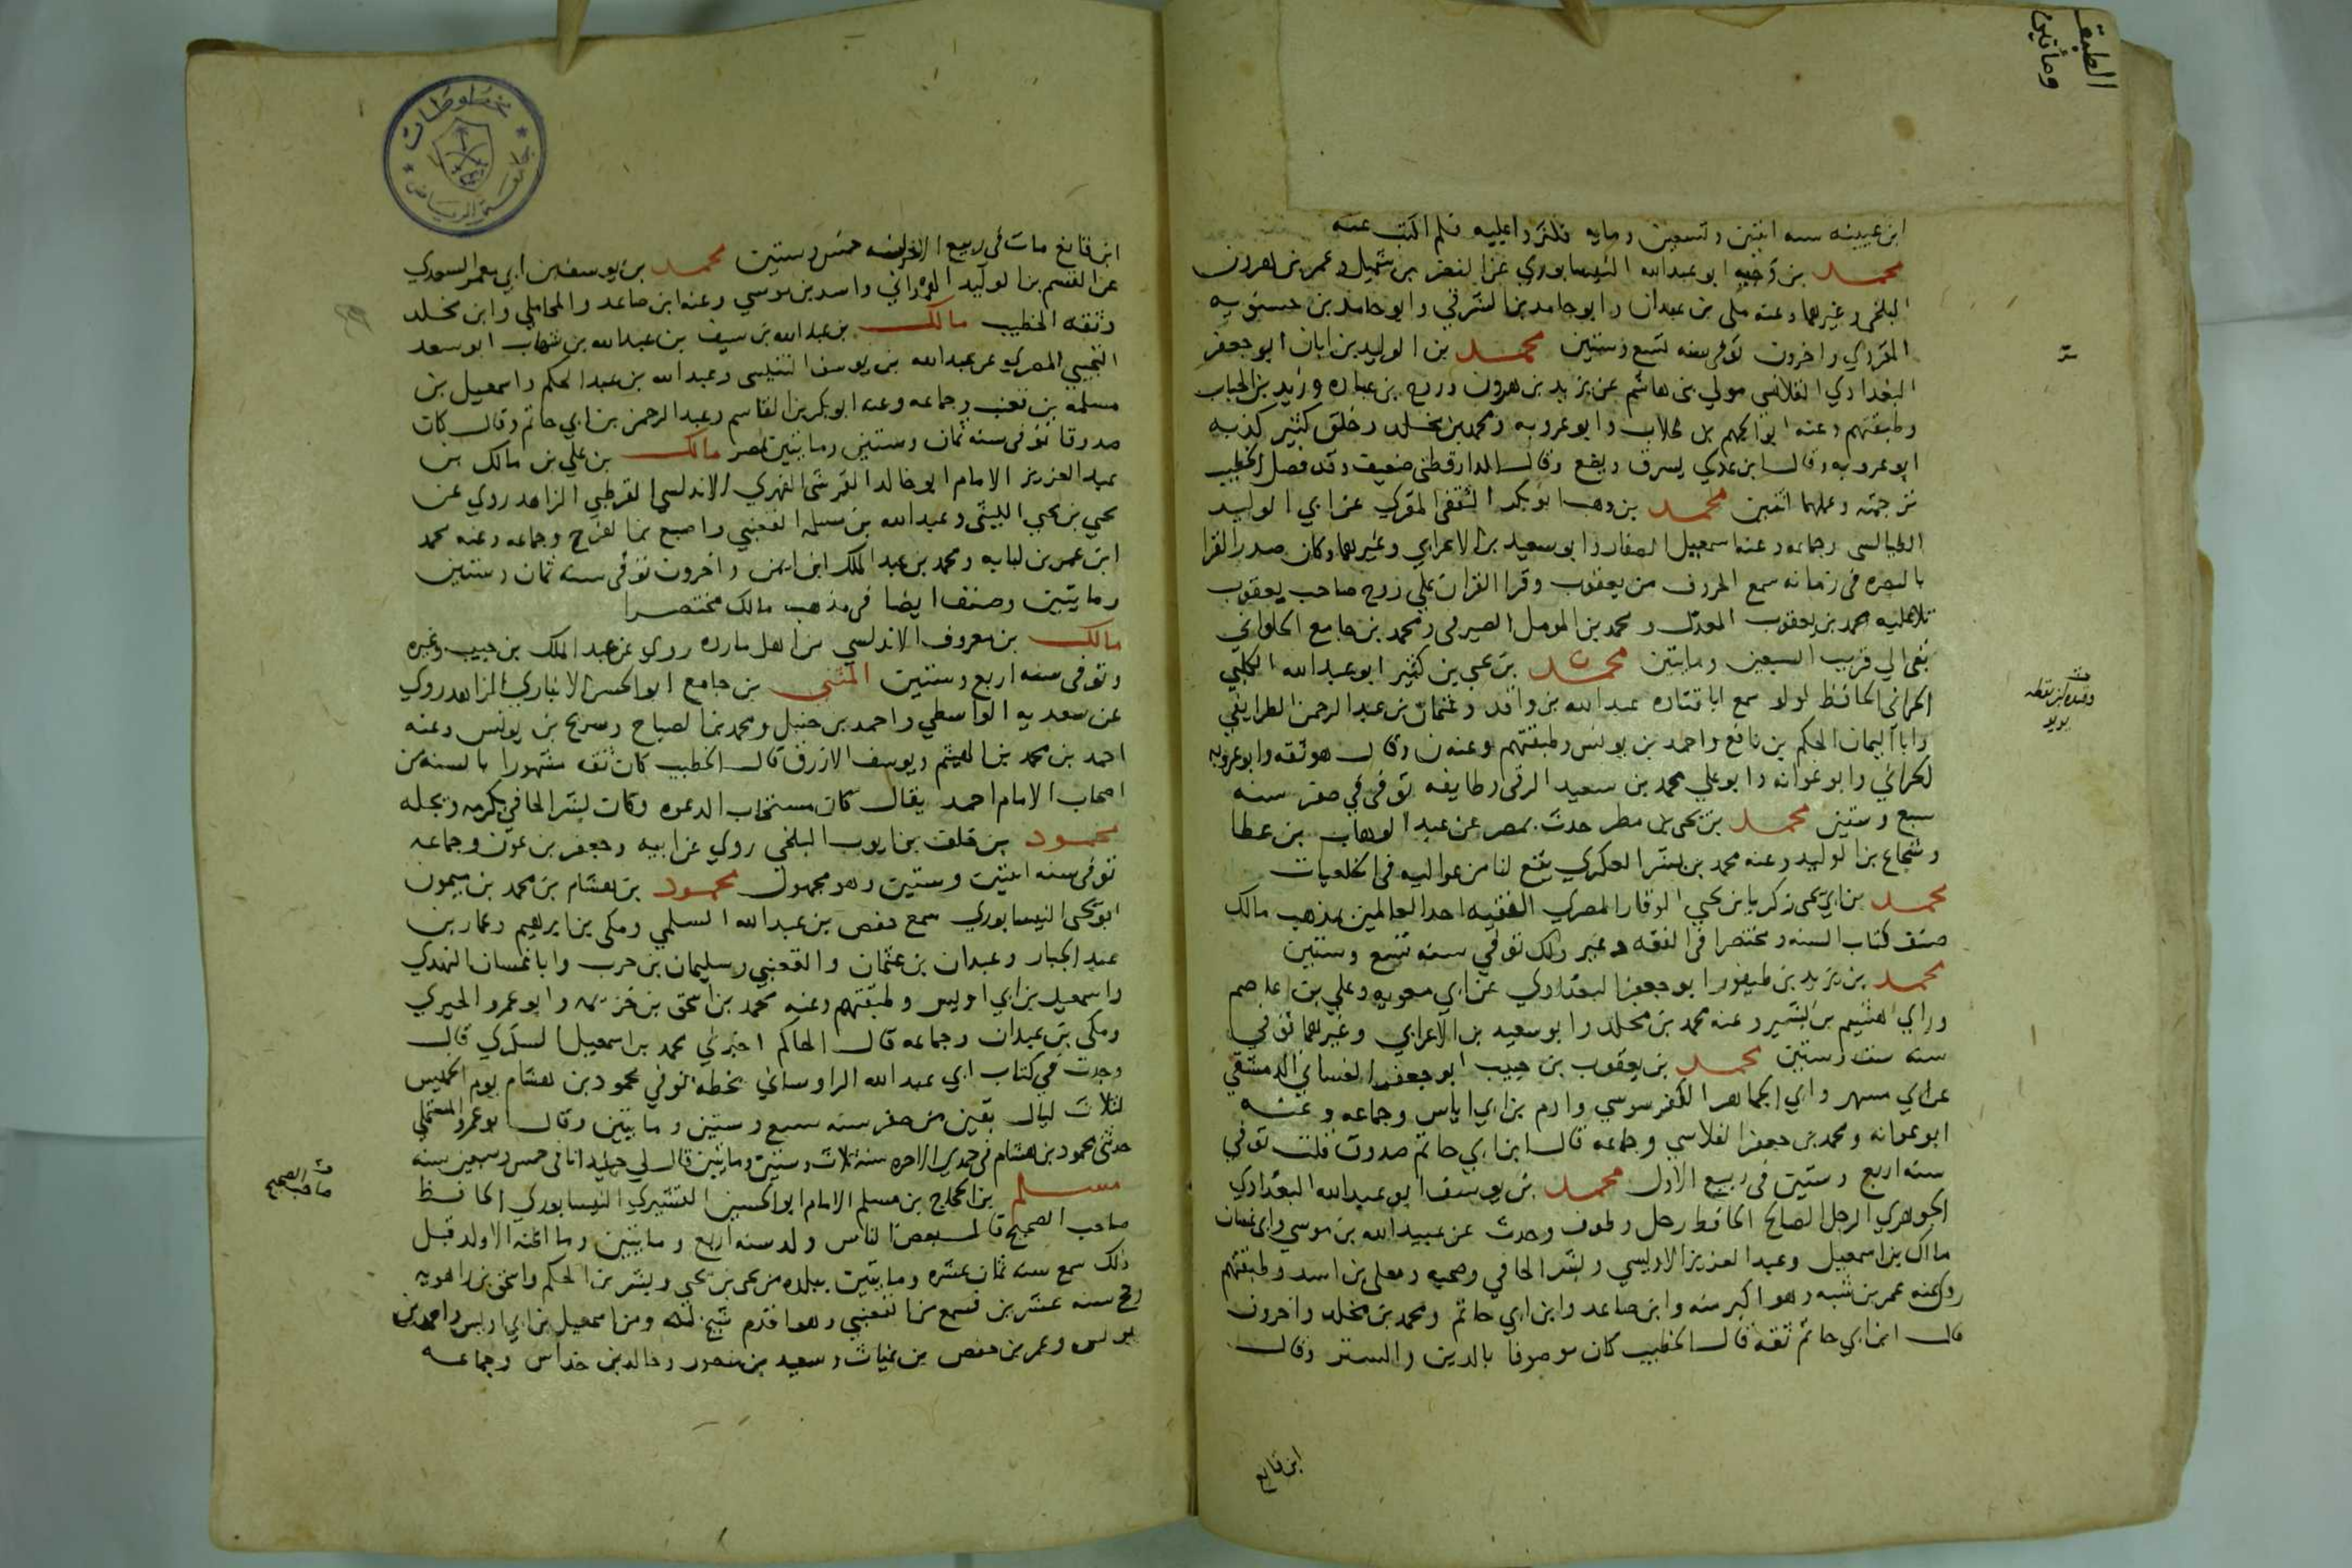 الطبقة
ومأتين
ابن عيينه سنه اثنين وتسعين ومايه فلم اكتب عنه
محمد بن وجيه ابو عبدالله النيسابوري عن النضر بن شميل وعمر بن هرون
البلخي وغيرهما وعنه مكي بن عبدان وابو حامد بن الشرقي وابو حامد بن حسنويه
المقري واخرون توفي سنه تسع وستين محمد بن الوليد بن ابان ابو جعفر
البغدادي القلانسي مولي بني هاشم عن يزيد بن هرون وروح بن عباده وزيد بن الحباب
وطبقتهم وعنه ابو الجهم بن طلاب وابو عروبه ومحمد بن مخلد وخلق كثير كذبه
ابو عروبه وقال ابن عدي يسرق ويضع وقال الدارقطني ضعيف وقد فصل الخطيب
ترجمته وعملهما اثنين محمد بن وهب ابو بكر الثقفي المقري عن ابي الوليد
الطيالسي وجماعه وعنه اسمعيل الصفار وابو سعيد بن الاعرابي وغيرهما وكان صدر القرا
بالبصره في زمانه سمع الحروف من يعقوب وقرا القران علي روح صاحب يعقوب
تلا عليه محمد بن يعقوب المعدل ومحمد بن المومل الصيرفي ومحمد بن جامع الحلواني
بقي الي قريب السبعين ومايتين محمد بن يحيي بن كثير ابو عبدالله الكلبي
الحراني الحافظ لولو سمع ابا قتاده عبدالله بن واقد وعثمان بن عبدالرحمن الطرايفي
وابا اليمان الحكم بن نافع واحمد بن يونس وطبقتهم وعنه ن وقال هو ثقه وابو عروبه
الحراني وابو عوانه وابو علي محمد بن سعيد الرقي وطايفه توفي في صفر سنه
سبع وستين محمد بن يحيي بن مطر حدث بمصر عن عبد الوهاب بن عطا
وشجاع بن الوليد وعنه محمد بن بشر العكري يقع لنا من عواليه في الخلعيات
محمد بن ابي يحيي زكريا بن يحيي الوقار المصري الفقيه احد العالمين بمذهب مالك
صنف كتاب السنه ومختصرا في الفقه وغير ذلك توفي سنه تسع وستين
محمد بن يزيد بن طيفور ابو جعفر البغدادي عن ابي معويه وعلي بن عاصم
وراي هشيم بن بشير وعنه محمد بن مخلد وابو سعيد بن الاعرابي وغيرهما توفي
سنه ست وستين محمد بن يعقوب بن حبيب ابو جعفر الغساني الدمشقي
عن ابي مسهر وابي الجماهر الكفرسوسي وادم بن ابي اياس وجماعه وعنه
ابو عوانه ومحمد بن جعفر الفلاسي وجماعه قال ابن ابي حاتم صدوق قلت توفي
سنه اربع وستين في ربيع الاول محمد بن يوسف ابو عبدالله البغدادي
الجوهري الرجل الصالح الحافظ رحل وطوف وحدث عن عبيدالله بن موسي وابي غسان
مالك بن اسمعيل وعبد العزيز الاويسي وبشر الحافي وصحبه ومعلي بن اسد وطبقتهم
روي عنه عمر بن شبه وهو اكبر منه وابن صاعد وابن ابي حاتم ومحمد بن مخلد واخرون
قال ابن ابي حاتم ثقه قال الخطيب كان موصوفا بالدين والستر وقال
ابن قانع
ابن قانع مات في ربيع الاخر سنه خمس وستين محمد بن يوسف بن ابي معمر السعدي
عن القسم بن الوليد الهمداني واسد بن موسي وعنه ابن صاعد والمحاملي وابن مخلد
وثقه الخطيب مالك بن عبدالله بن سيف بن عبدالله بن شهاب ابو سعد
التجيبي المصري عن عبدالله بن يوسف التنيسي وعبدالله بن عبد الحكم واسمعيل بن
مسلمه بن قعنب وجماعه وعنه ابو بكر بن القاسم وعبد الرحمن بن ابي حاتم وقال كان
صدوقا توفي سنه ثمان وستين ومايتين بمصر مالك بن علي بن مالك بن
عبد العزيز الامام ابو خالد القرشي الفهري الاندلسي القرطبي الزاهد روي عن
يحيي بن يحيي الليثي وعبدالله بن مسلمه القعنبي واصبغ بن الفرج وجماعه وعنه محمد
ابن عمر بن لبابه ومحمد بن عبد الملك ابن ايمن واخرون توفي سنه ثمان وستين
ومايتين وصنف ايضا في مذهب مالك مختصرا
مالك بن معروف الاندلسي من اهل مارده روي عن عبد الملك بن حبيب وغيره
وتوفي سنه اربع وستين المثني بن جامع ابو الحسن الانباري الزاهد روي
عن سعدويه الواسطي واحمد بن حنبل ومحمد بن الصباح وسريج بن يونس وعنه
احمد بن محمد بن الهيثم ويوسف الازرق قال الخطيب كان ثقه مشهورا بالسنه من
اصحاب الامام احمد يقال كان مستجاب الدعوه وكان بشر الحافي يكرمه ويجله
محمود بن خلف بن ايوب البلخي روي عن ابيه وجعفر بن عون وجماعه
توفي سنه اثنين وستين وهو مجهول محمود بن هشام بن محمد بن ميمون
ابو يحيي النيسابوري سمع حفص بن عبدالله السلمي ومكي بن ابرهيم وعمار بن
عبد الجبار وعبدان بن عثمان والقعنبي وسليمان بن حرب وابا غسان النهدي
واسمعيل بن ابي اويس وطبقتهم وعنه محمد بن اسحق بن خزيمه وابو عمرو الحيري
ومكي بن عبدان وجماعه قال الحاكم اخبرني محمد بن اسمعيل السكري قال
وجدت في كتاب ابي عبدالله الراوساني بخطه توفي محمود بن هشام يوم الخميس
لثلاث ليال بقين من صفر سنه سبع وستين ومايتين وقال ابو عمرو المستملي
حدثني محمود بن هشام في جمدي الاخره سنه ثلاث وستين ومايتين قال لي انا في خمس وسبعين سنه
مسلم بن الحجاج بن مسلم الامام ابو الحسين القشيري النيسابوري الحافظ
صاحب الصحيح قال بعض الناس ولد سنه اربع ومايتين وما اظنه الا ولد قبل
ذلك سمع سنه ثمان عشره ومايتين ببلده من يحيي بن يحيي وبشر بن الحكم واسحق بن راهويه
وحج سنه عشرين فسمع من القعنبي وهو اقدم شيخ له ومن اسمعيل بن ابي اويس واحمد بن
يونس وعمر بن حفص بن غياث وسعيد بن منصور وخالد بن خداش وجماعه
صاحب الصحيح
مخطوطات
جامعة الرياض